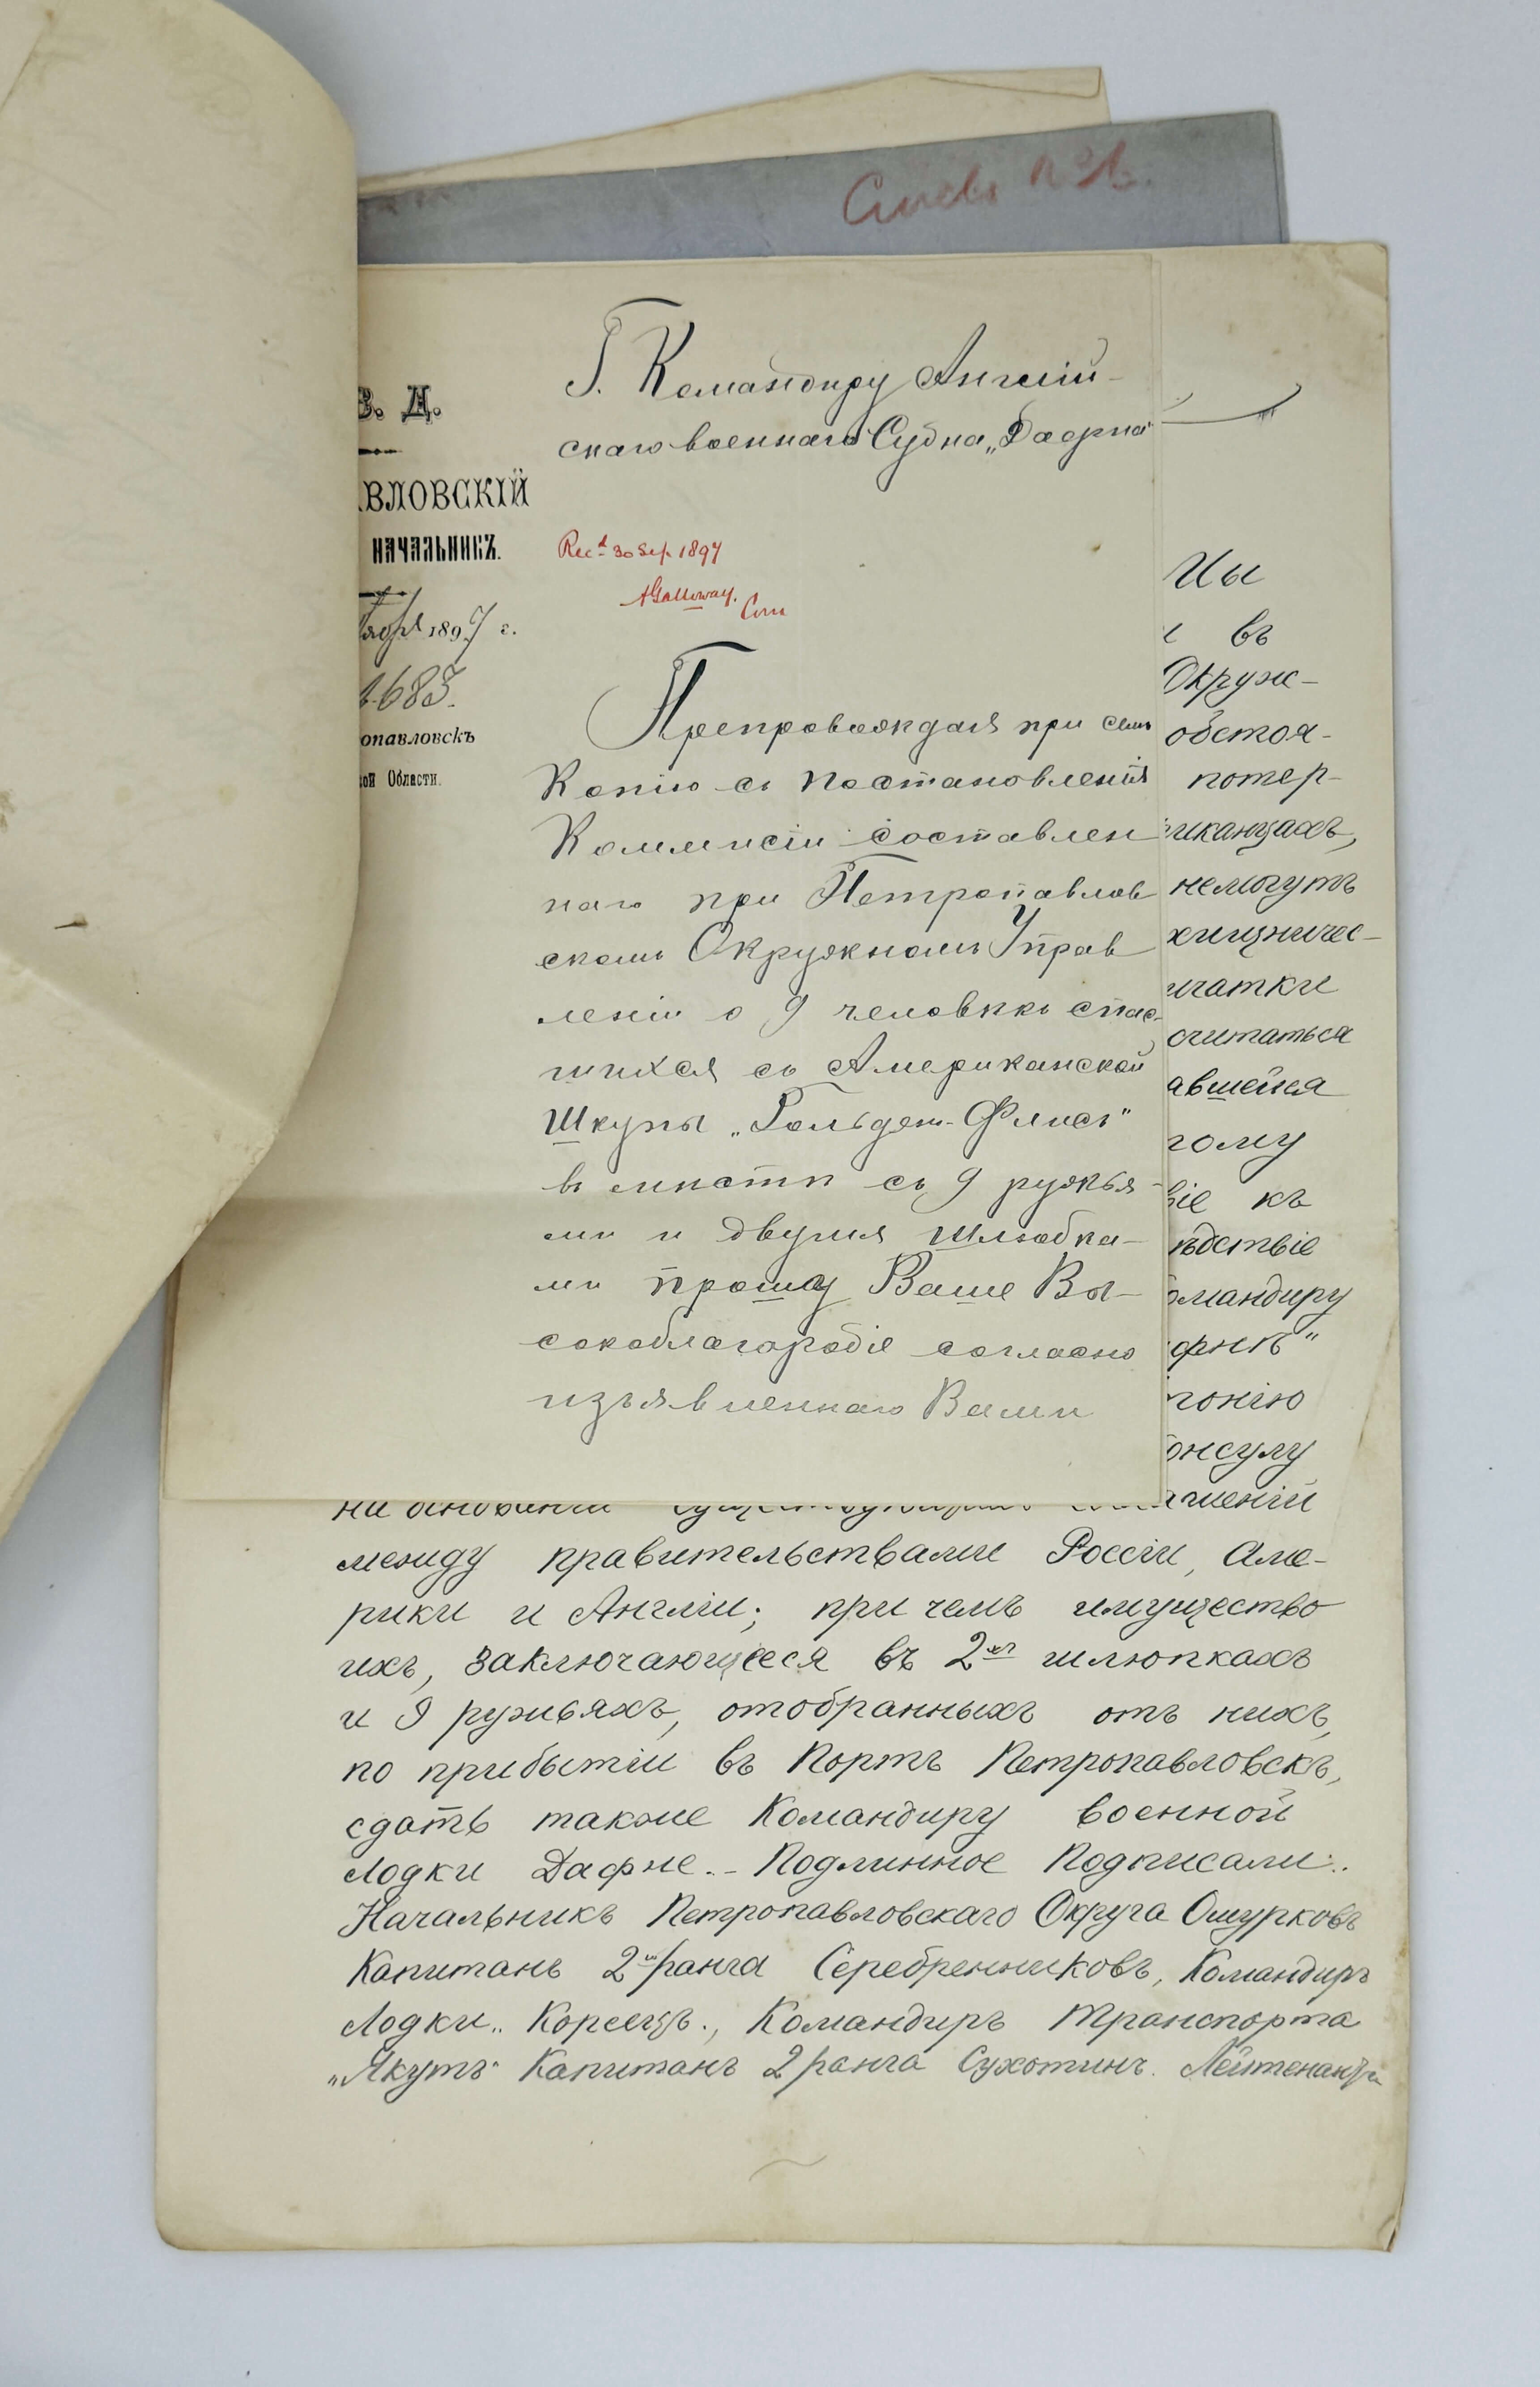 В. Д.
ВЛОВСКІЙ
НАЧАЛЬНИКЪ.
тября 1897 г.
1683.
опавловскъ
ой Области.
Г. Командиру Англій-
скаго военнаго Судна „Дафна"
Recd 30 Sep 1897
AGalloway. Com
Препровождая при семъ
Копію съ постановленія
Коммисіи составлен
наго при Петропавлов
скомъ Окружномъ Управ
леніи о 9 человѣкъ спас-
шихся съ Американской
Шкуны „Гольден-Флисъ"
въ мѣстѣ съ 9 ружья-
ми и двумя шлюбка-
ми прошу Ваше Вы-
сокоблагородіе согласно
изъявленнаго Вами
Мы
въ
Окруж-
обстоя-
потер-
иканцахъ,
немогутъ
хищничес-
чатки
считаться
авшейся
тому
віе къ
ѣдствіе
омандиру
фнѣ"
онсулу
на основаніи существующихъ соглашеній
между правительствами Россіи, Аме-
рики и Англіи; при чемъ имущество
ихъ, заключающееся въ 2хъ шлюпкахъ
и 9 ружьяхъ, отобранныхъ отъ нихъ,
по прибытіи въ Портъ Петропавловскъ,
сдать также Командиру военной
Лодки Дафне.- Подлинное Подписали:.
Начальникъ Петропавловскаго Округа Ошурковъ
Капитанъ 2го ранга Серебренниковъ, Командиръ
Лодки „Кореецъ"., Командиръ Транспорта
„Якутъ" Капитанъ 2 ранга Сухотинъ. Лейтенантъ